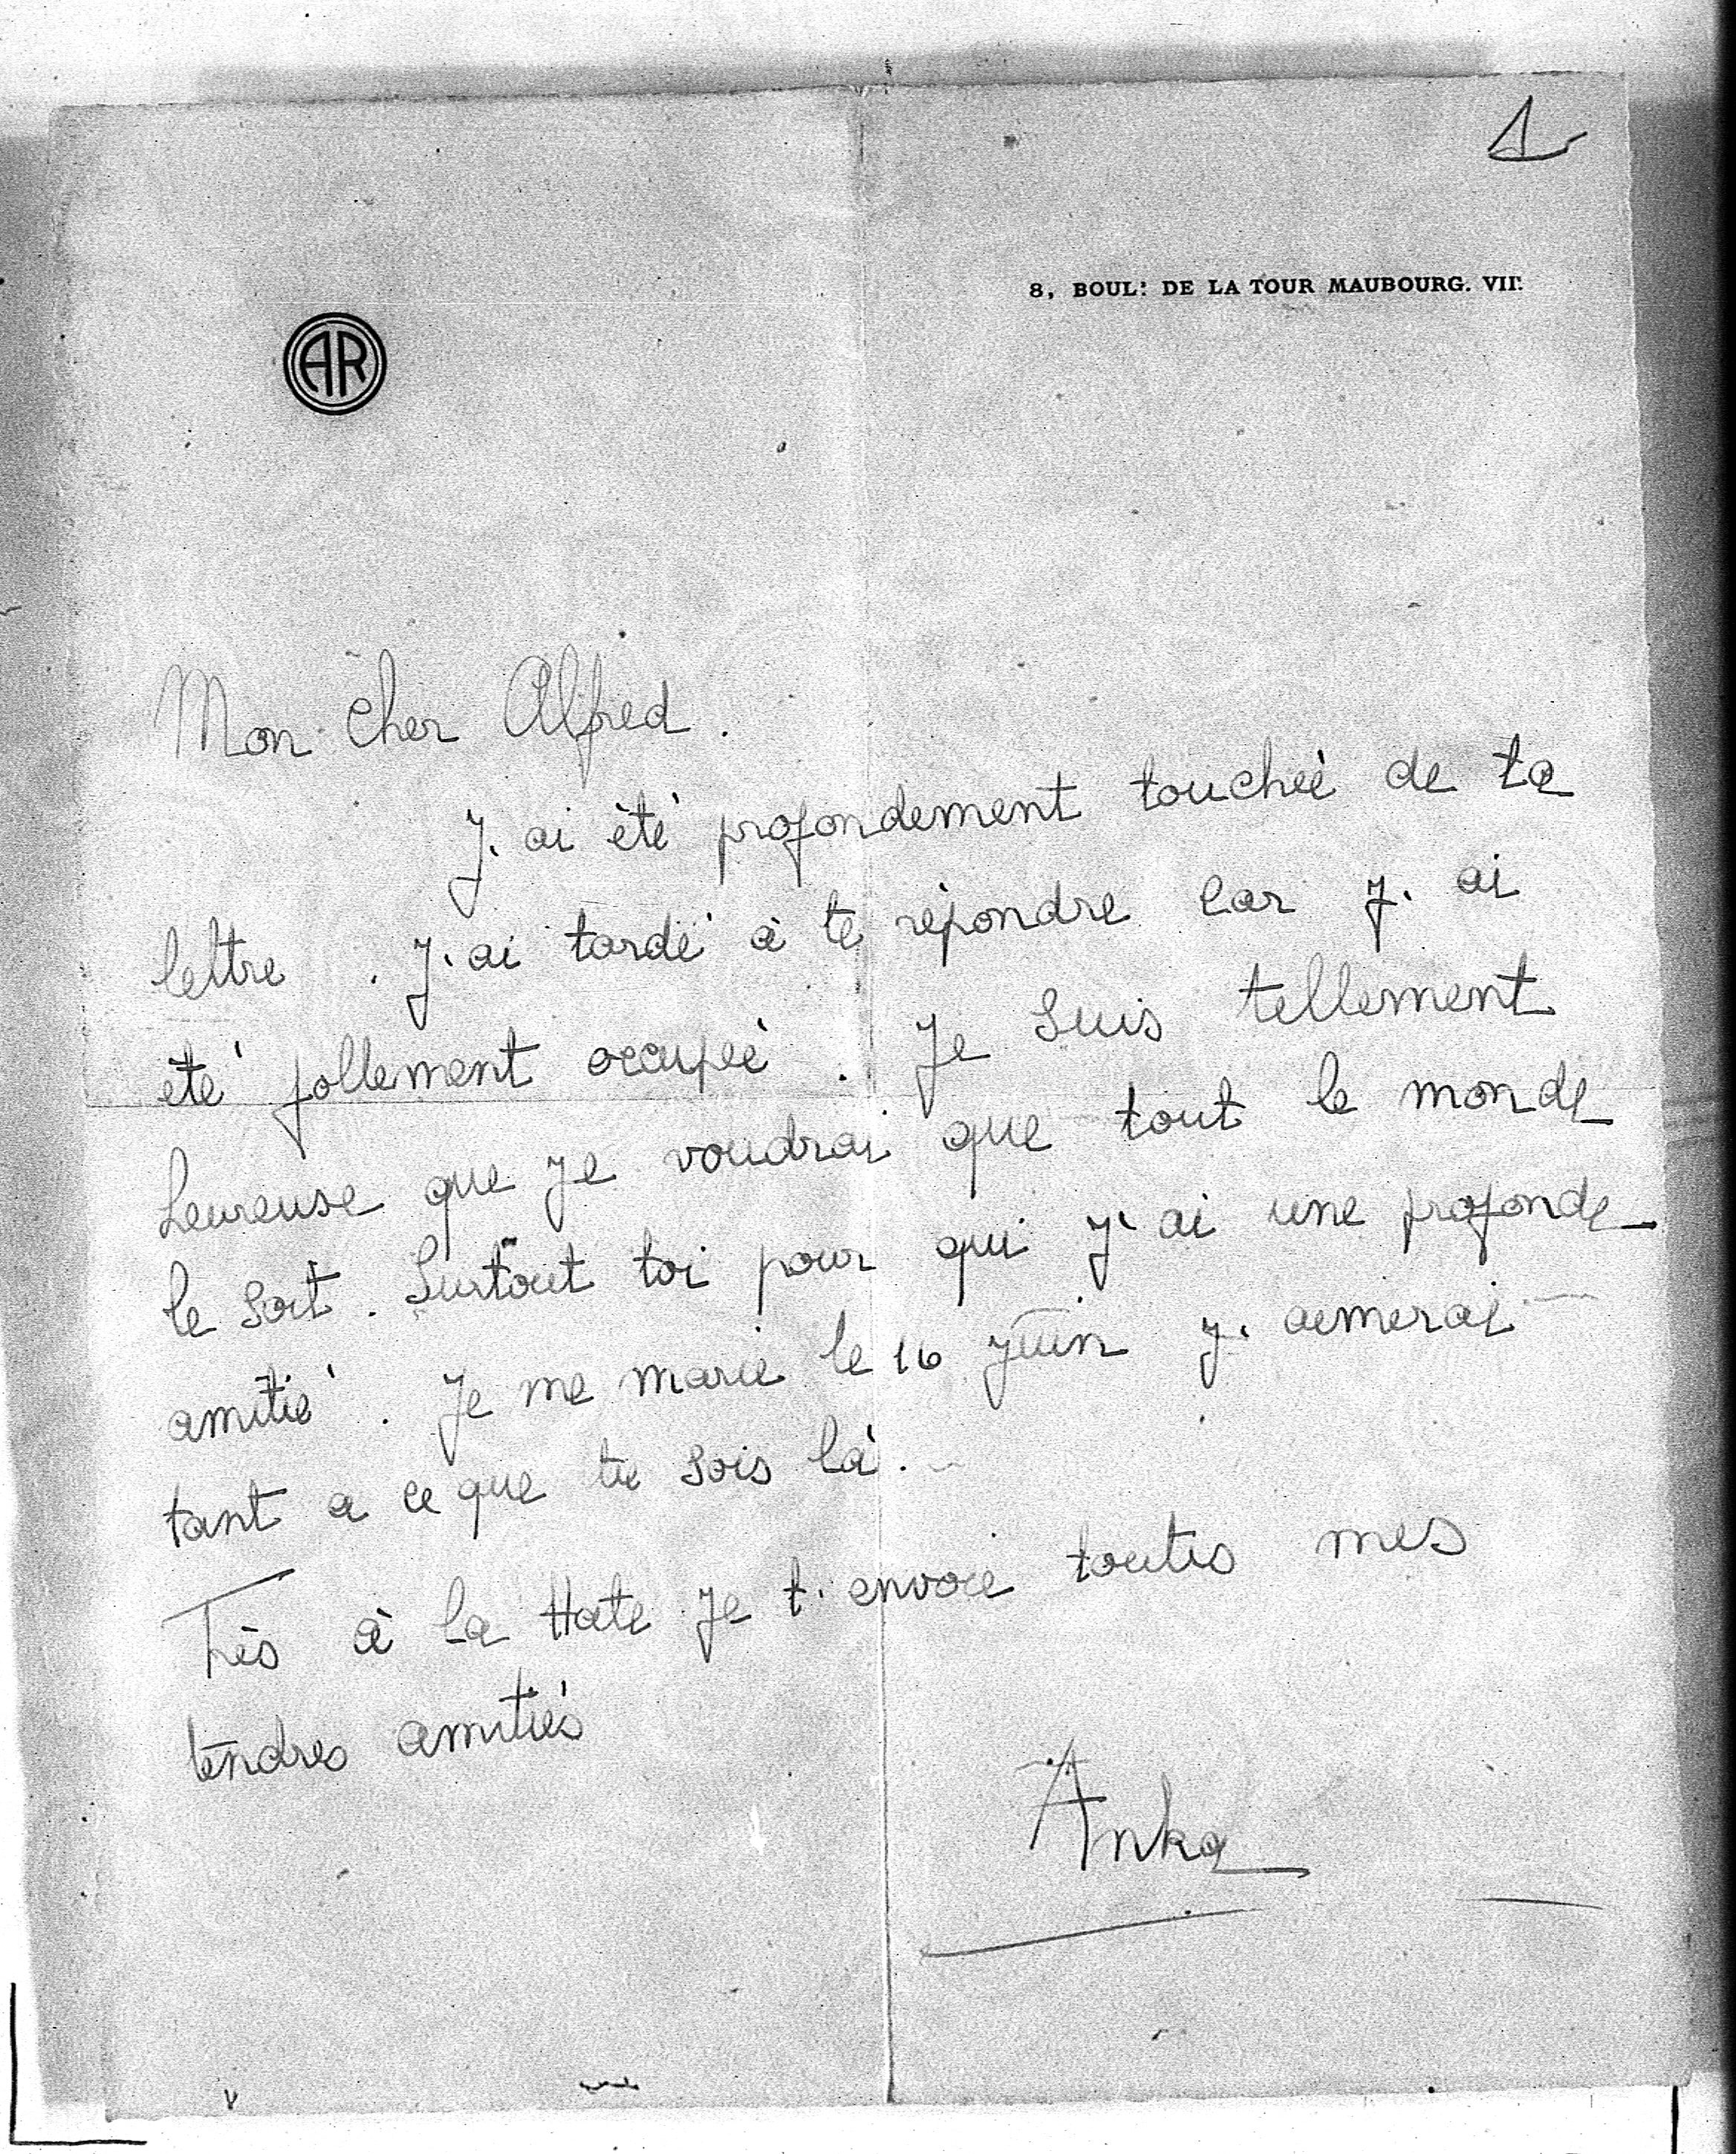 1
8, BOULᵈ DE LA TOUR MAUBOURG. VIIᵉ
AR
Mon cher Alfred.
J'ai été profondement touchée de ta
lettre. J'ai tardé à te répondre car j'ai
été follement occupée. Je suis tellement
heureuse que je voudrai que tout le monde
le soit. Surtout toi pour qui j'ai une profonde
amitié. Je me marie le 16 juin j'aimerai
tant a ce que tu sois là.
Très à la Hate je t'envoie toutes mes
tendres amitiés
Anka